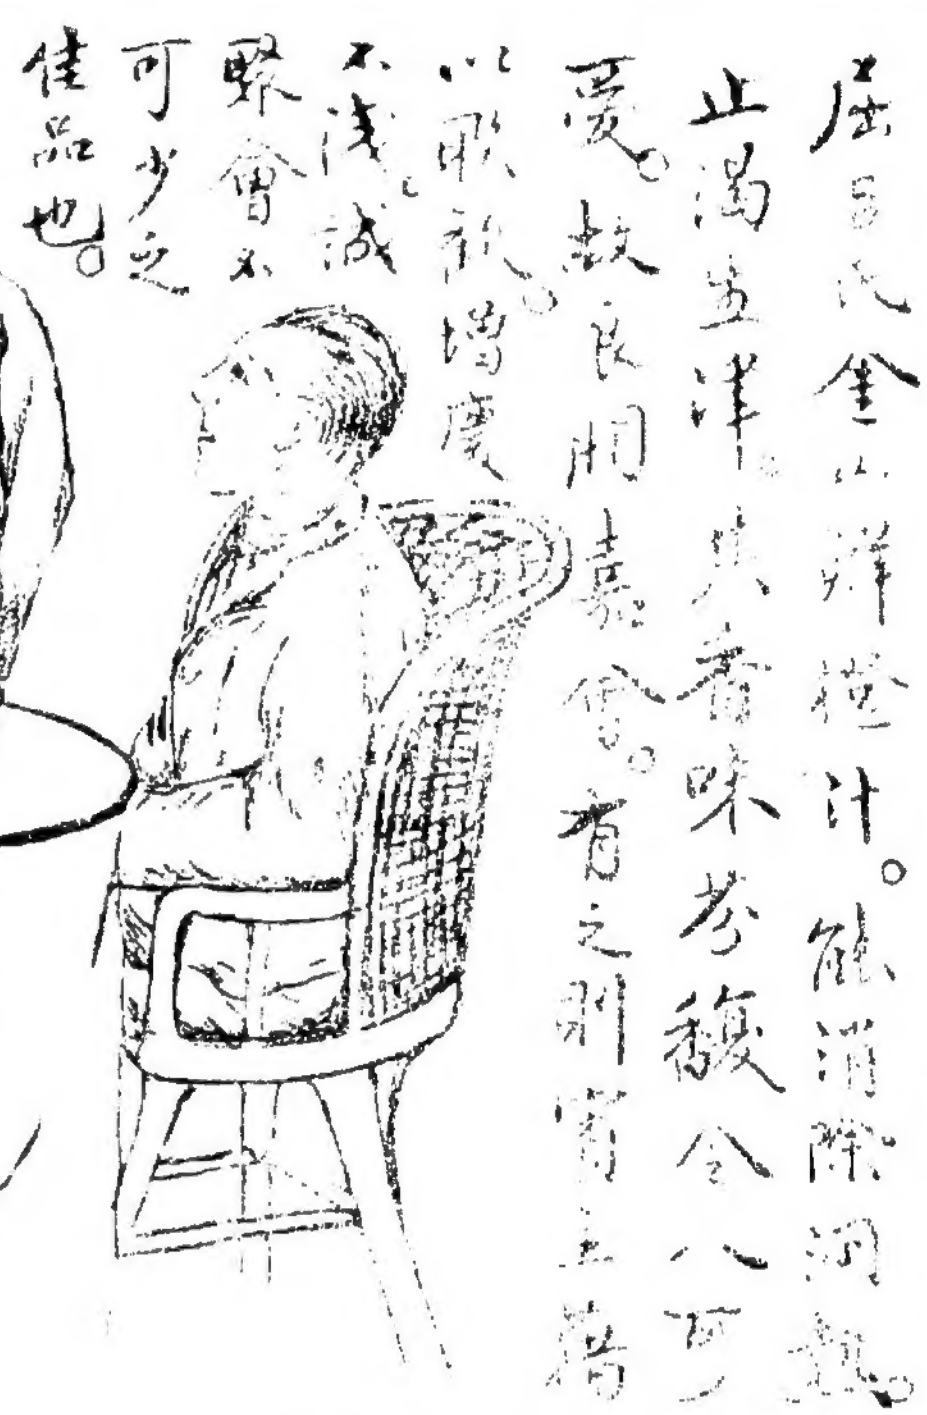 屈臣氏金山鮮橙汁。能消除熱。
止渴生津。其香味芬馥令人可
愛。故良朋嘉會。有之則賓主藉
以歡。增慶
不淺。誠
聚會不
可少之
佳品也。